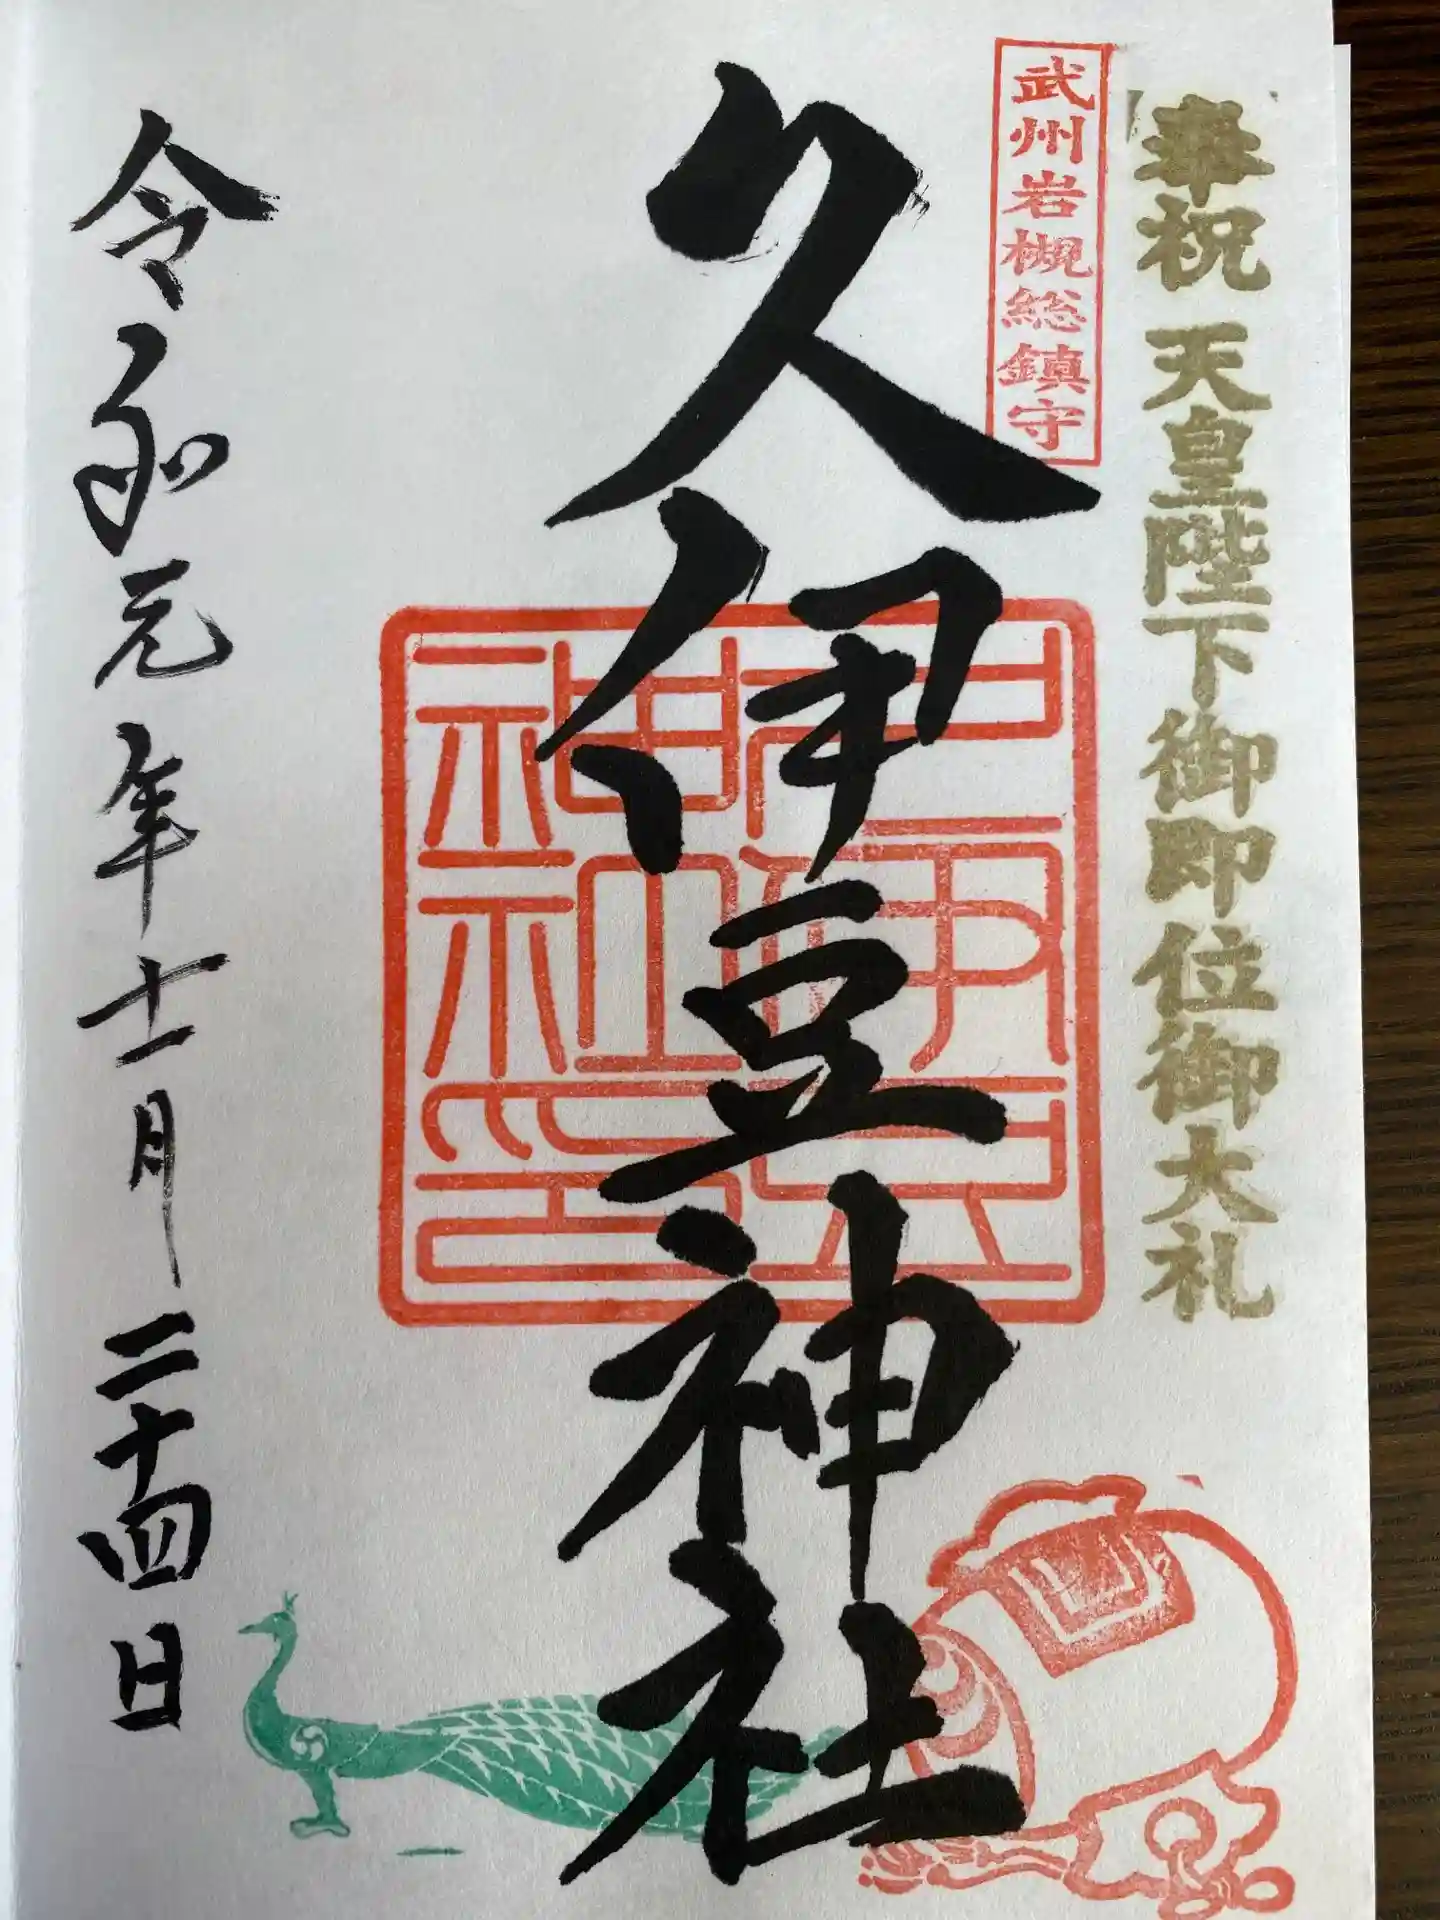 奉祝 天皇陛下御即位御大礼
武州岩槻総鎮守
久伊豆神社
久伊豆神社印
令和元年十一月二十四日